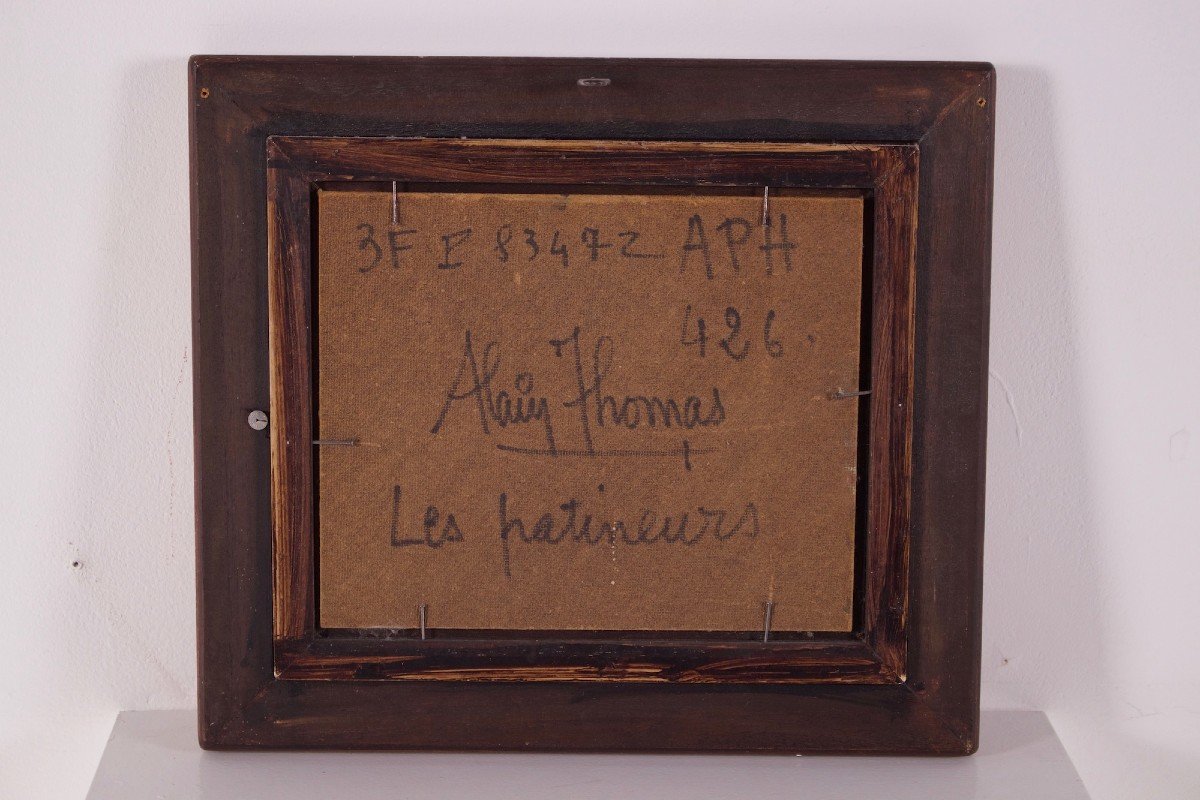 3F E 83472 APH
426.
Alain Thomas
Les patineurs